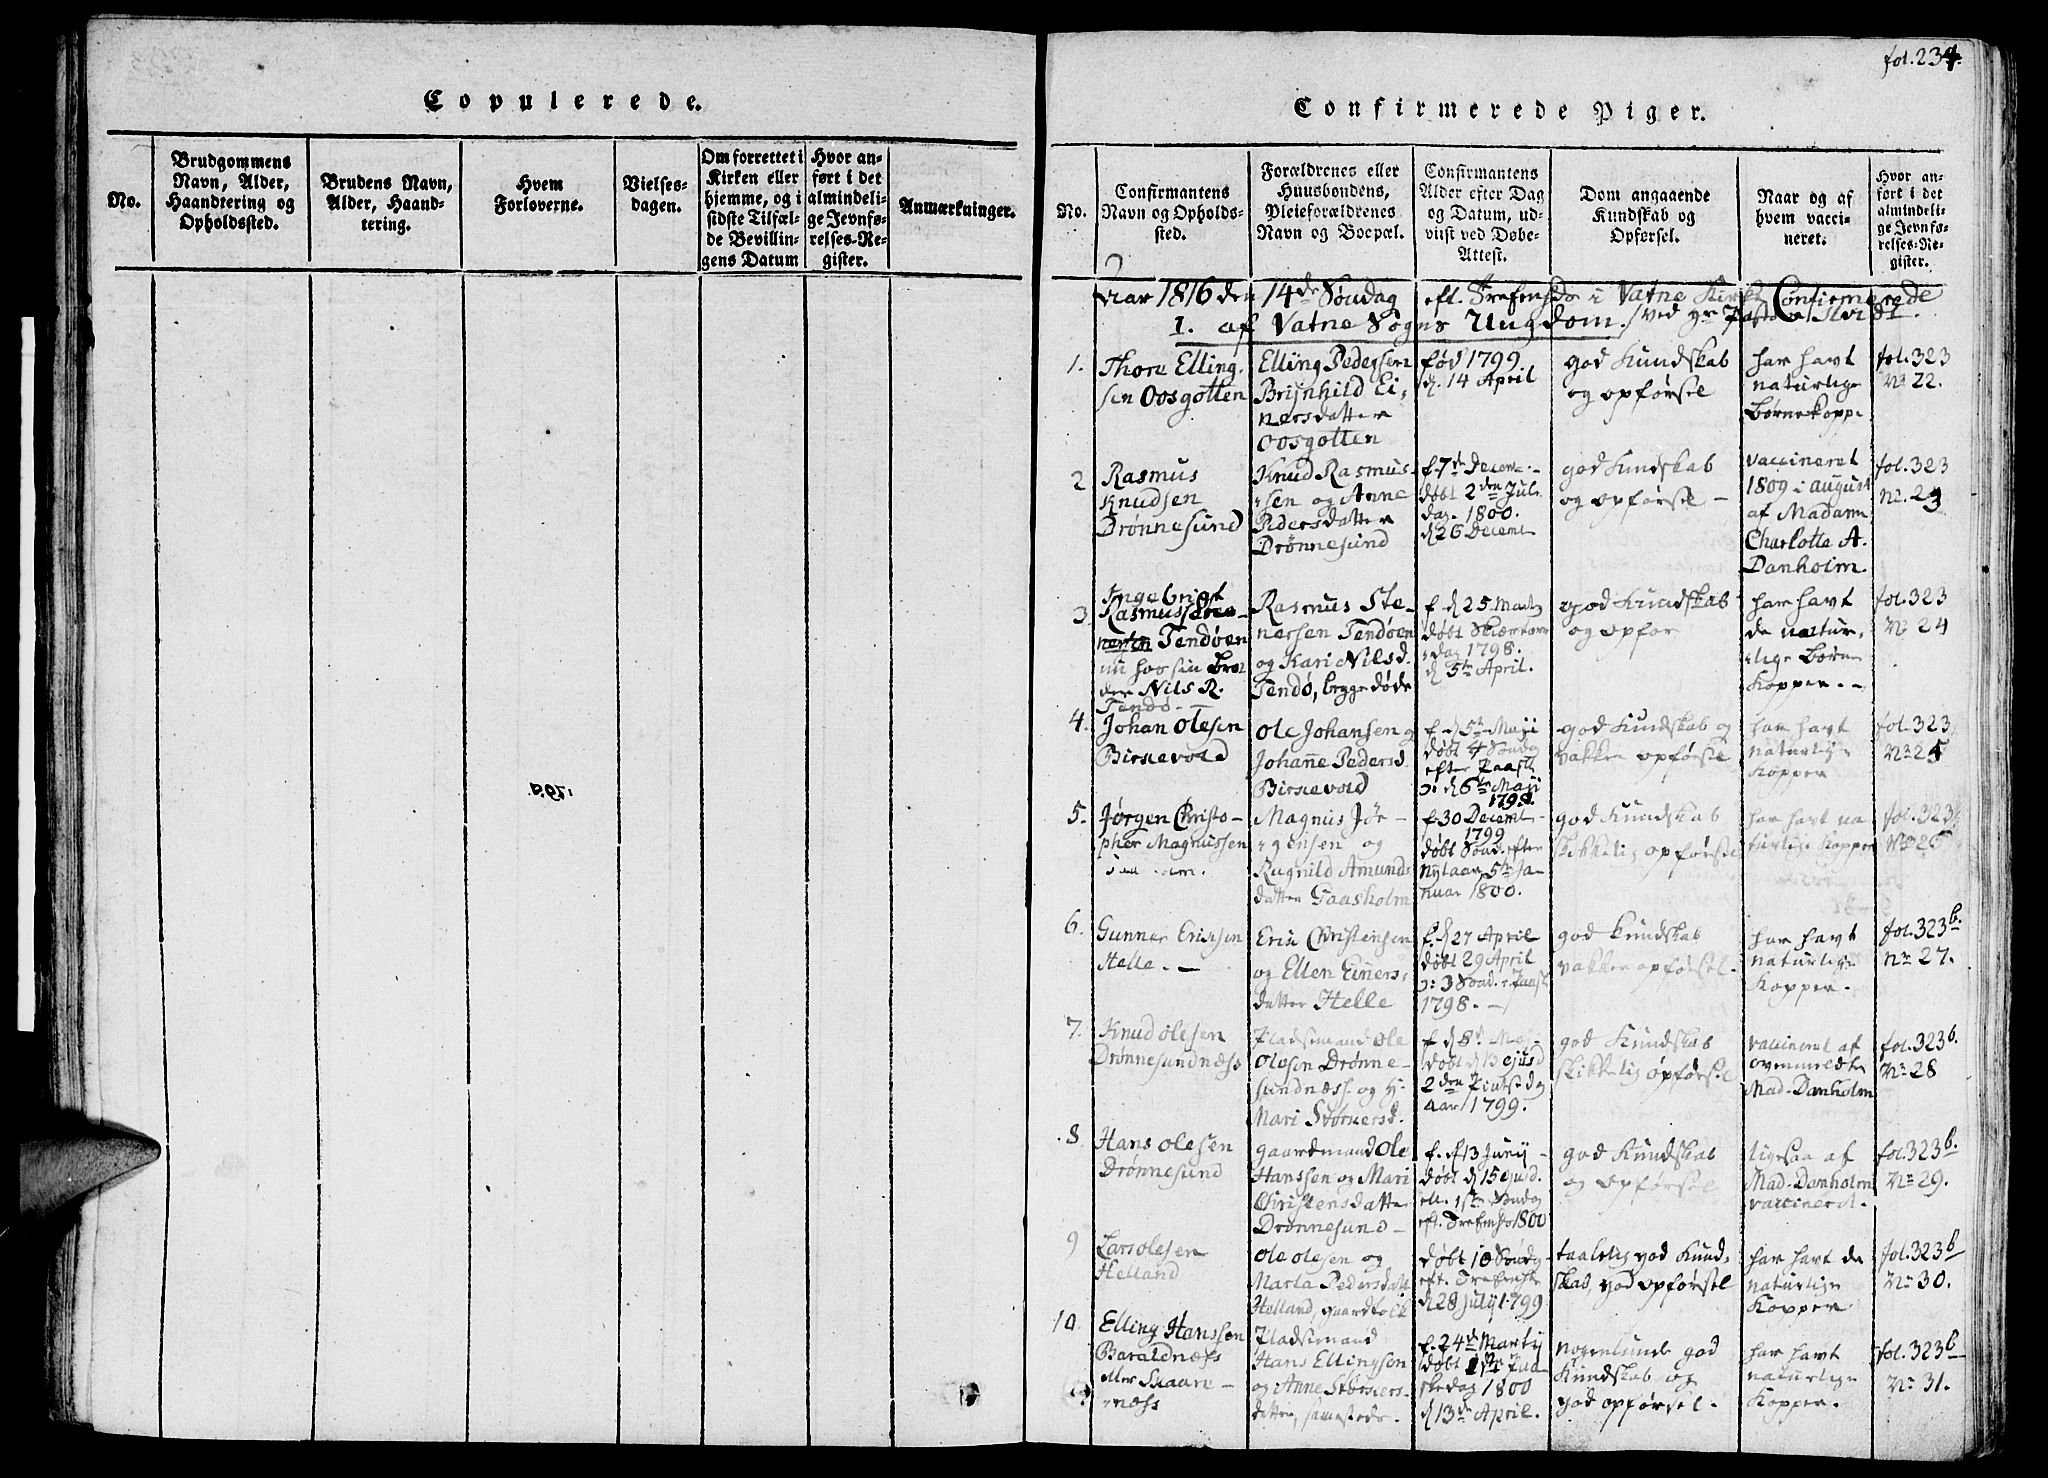 Copulerede.
No.
Brudgommens
Navn, Alder,
Haandtering og
Opholdssted.
Brudens Navn,
Alder, Haand-
tering.
Hvem
Forloverne.
Vielses-
dagen.
Om forrettet i
Kirken eller
hjemme, og i
sidste Tilfæl-
de Bevillin-
gens Datum
Hvor an-
ført i det
almindeli-
ge Jevnfø-
relses-Re-
gister.
Anmærkninger.
fol. 234.
Confirmerede Piger.
No.
Confirmantens
Navn og Opholds-
sted.
Forældrenes eller
Huusbondens,
Pleieforældrenes
Navn og Boepæl.
Confirmantens
Alder efter Dag
og Datum, ud-
viist ved Døbe-
Attest.
Dom angaaende
Kundskab og
Opførsel.
Naar og af
hvem vacci-
neret.
Hvor an-
ført i det
almindeli-
ge Jevnfø-
relses-Re-
gister.
Aar 1816 den 14de Søndag eft. Trefensde i Vatne Kirke Confirmerede
1. af Vatne Sogns Ungdom. ved Hr
1.
Thore Elling-
sen Oosgotten
Elling Pedersen
Brijnhild Ei-
nersdatter
Oosgotten
fød 1799
d. 14 April
god Kundskab
og opførsel
har havt
naturlige
Børnekopper
fol. 323
No 22.
2
Rasmus
Knudsen
Drønnesund
Knud Rasmus-
sen og Anne
Pedersdatter
Drønnesund
f. 7de Decem-
døbt 2den Jule
dag. 1800.
d 26 Decemb
god Kundskab
og opførsel -
vaccineret
1809 i august
af Madam
Charlotte A.
Danholm.
fol. 323
No. 23
3
Ingebrigt
Rasmussen
Tendøen
nu hos sin Bro-
der Nils R.
Tendø -
Rasmus Ste-
nersen Tendøen
og Kari Nilsd.
Tendø, begge døde
f. d 25 Marts
døbt Skiærtors
dag 1798.
d 5te April.
god Kundskab
og opfør
har havt
de natur-
lige Børne
Kopper. -
fol. 323
No 24
4.
Johan Olesen
Birkevold
Ole Johansen og
Johanne Pedersd.
Birkevold
f. d 5te Maji
døbt 4 Søndg
efter Paaske
o: d 6te Maji
1798.
god Kundskab og
vakker opførsel
har havt
naturlige
Kopper
fol. 323
No 25
5.
Jørgen Christo-
pher Magnussen
Magnus Jør-
gensen og
Ragnild Amunds
datter Gaasholm
f. 30 Decemb
1799
døbt Sønd. efter
Nytaar 5te Ja-
nuar 1800.
god Kundskab
skikkelig opførsel
har havt na
turlige Kopper
fol. 323
No 26
6.
Gunner Ericksen
Helle. -
Erik Christensen
og Ellen Einers-
datter Helle
f. d 27 April
døbt 29 April
o: 3 Sønd. e. Paask
1798. -
god kundskab
vakker opførsel.
har havt
naturlige
Kopper.
fol. 323b.
No 27.
7.
Knud Olesen
Drønnesundnæss
Pladsemand Ole
Olesen Drønne-
sundnæss og H.
Mari Størkersd.
f. d 8de Maj
døbt d 13 ejusd
2den Pintsedag
aar 1799.
god Kundskab
skikkelig opførsel
vaccineret af
ovenmeldte
Mad. Danholm
fol. 323b.
No 28
8
Hans Olesen
Drønnesund
gaardmand Ole
Hanssen og Mari
Christensdatter
Drønnesund -
f. d 13 Junij -
døbt d 15 ejusd.
ell. 1ste Søndag
eft. Trefensho 1800
god Kundskab
og opførsel
ligesaa af
Mad. Danholm
vaccineret.
fol. 323b.
No 29.
9
Lars Olesen
Helland
Ole Olesen og
Marta Pedersdatt
Helland, gaardfolk
døbt 10 Søndg
eft. Trefensh
d 28 Julij 1799
taalelig god Kund-
skab, god opførsel
har havt de
naturlige
Kopper
fol. 323b
No 30.
10.
Elling Hanssen
Baraldnæss
eller Skaare-
næss
Pladsemand
Hans Ellingsen
og Anne Størkers-
datter, samestede.
f. 24de Martij
døbt 1ste Paa-
skedag 1800
d 13de April.
nogenlunde god
Kundskab og
god opførsel.
har havt
naturlige
Kopper.
fol. 323b
No 31.